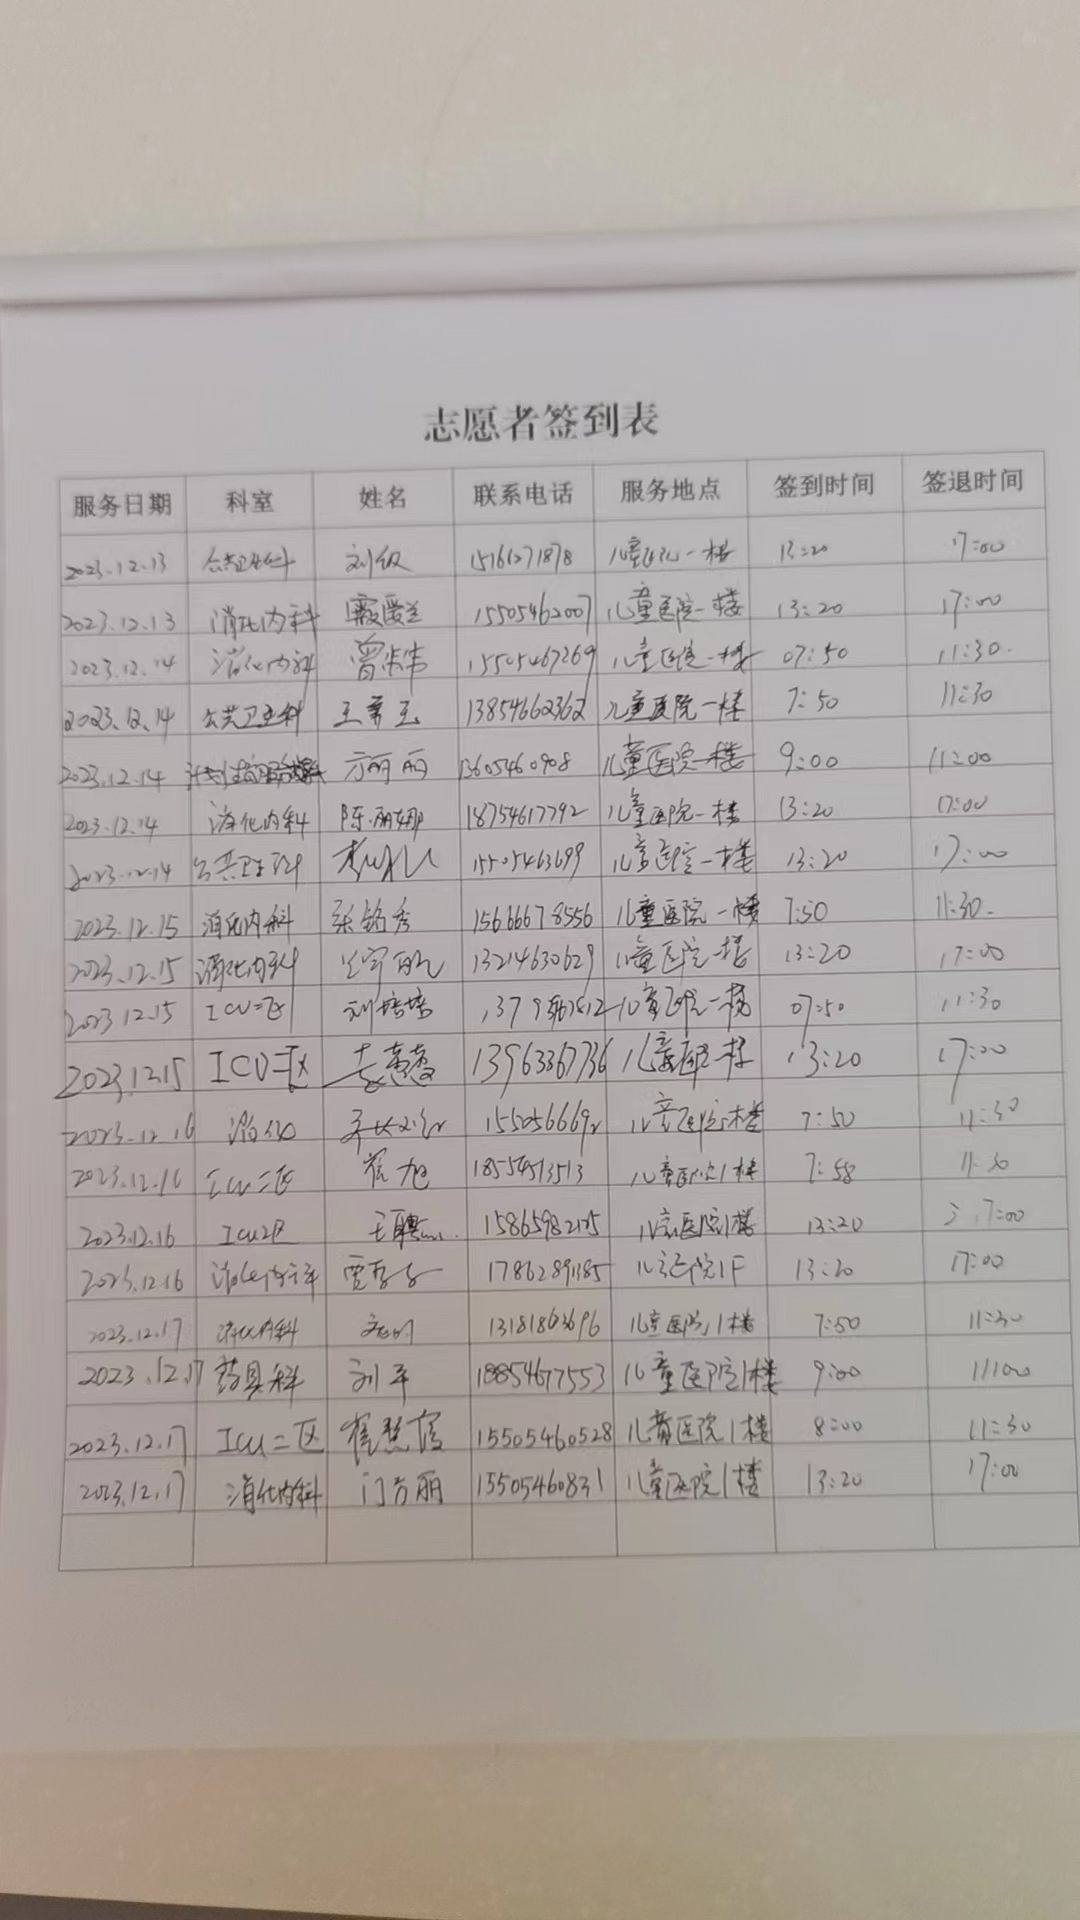 志愿者签到表
服务日期 科室 姓名 联系电话 服务地点 签到时间 签退时间
2023.12.13 公共卫生科 刘 15161271878 儿童医院一楼 13:20 17:00
2023.12.13 消化内科 15505462007 儿童医院一楼 13:20 17:00
2023.12.14 消化内科 15505467269 儿童医院一楼 07:50 11:30.
2023.12.14 公共卫生科 王 玉 13854662362 儿童医院一楼 7:50 11:30
2023.12.14 方丽丽 13605460908 儿童医院一楼 9:00 11:00
2023.12.14 消化内科 陈丽娜 18754617792 儿童医院一楼 13:20 17:00
2023.12.14 公共卫生科 15505463699 儿童医院一楼 13:20 17:00
2023.12.15 消化内科 张铭秀 15666678556 儿童医院一楼 7:50 11:30.
2023.12.15 消化内科 13214630629 儿童医院一楼 13:20 17:00
2023.12.15 ICU二区 刘培培 儿童医院一楼 07:50 11:30
2023.12.15 ICU二区 13963367736 儿童医院一楼 13:20 17:00
2023.12.16 消化 儿童医院1楼 7:50 11:30
2023.12.16 ICU二区 崔旭 18554513513 儿童医院1楼 7:58 11:30
2023.12.16 ICU2区 王聘 儿童医院1楼 13:20 17:00
2023.12.16 贾 17862891185 儿童医院1F 13:20 17:00
2023.12.17 消化内科 13181863696 儿童医院1楼 7:50 11:30
2023.12.17 药具科 刘平 18854677553 儿童医院1楼 9:00 11:00
2023.12.17 ICU二区 崔慧 15505460528 儿童医院1楼 8:00 11:30
2023.12.17 消化内科 门方丽 15505460831 儿童医院1楼 13:20 17:00